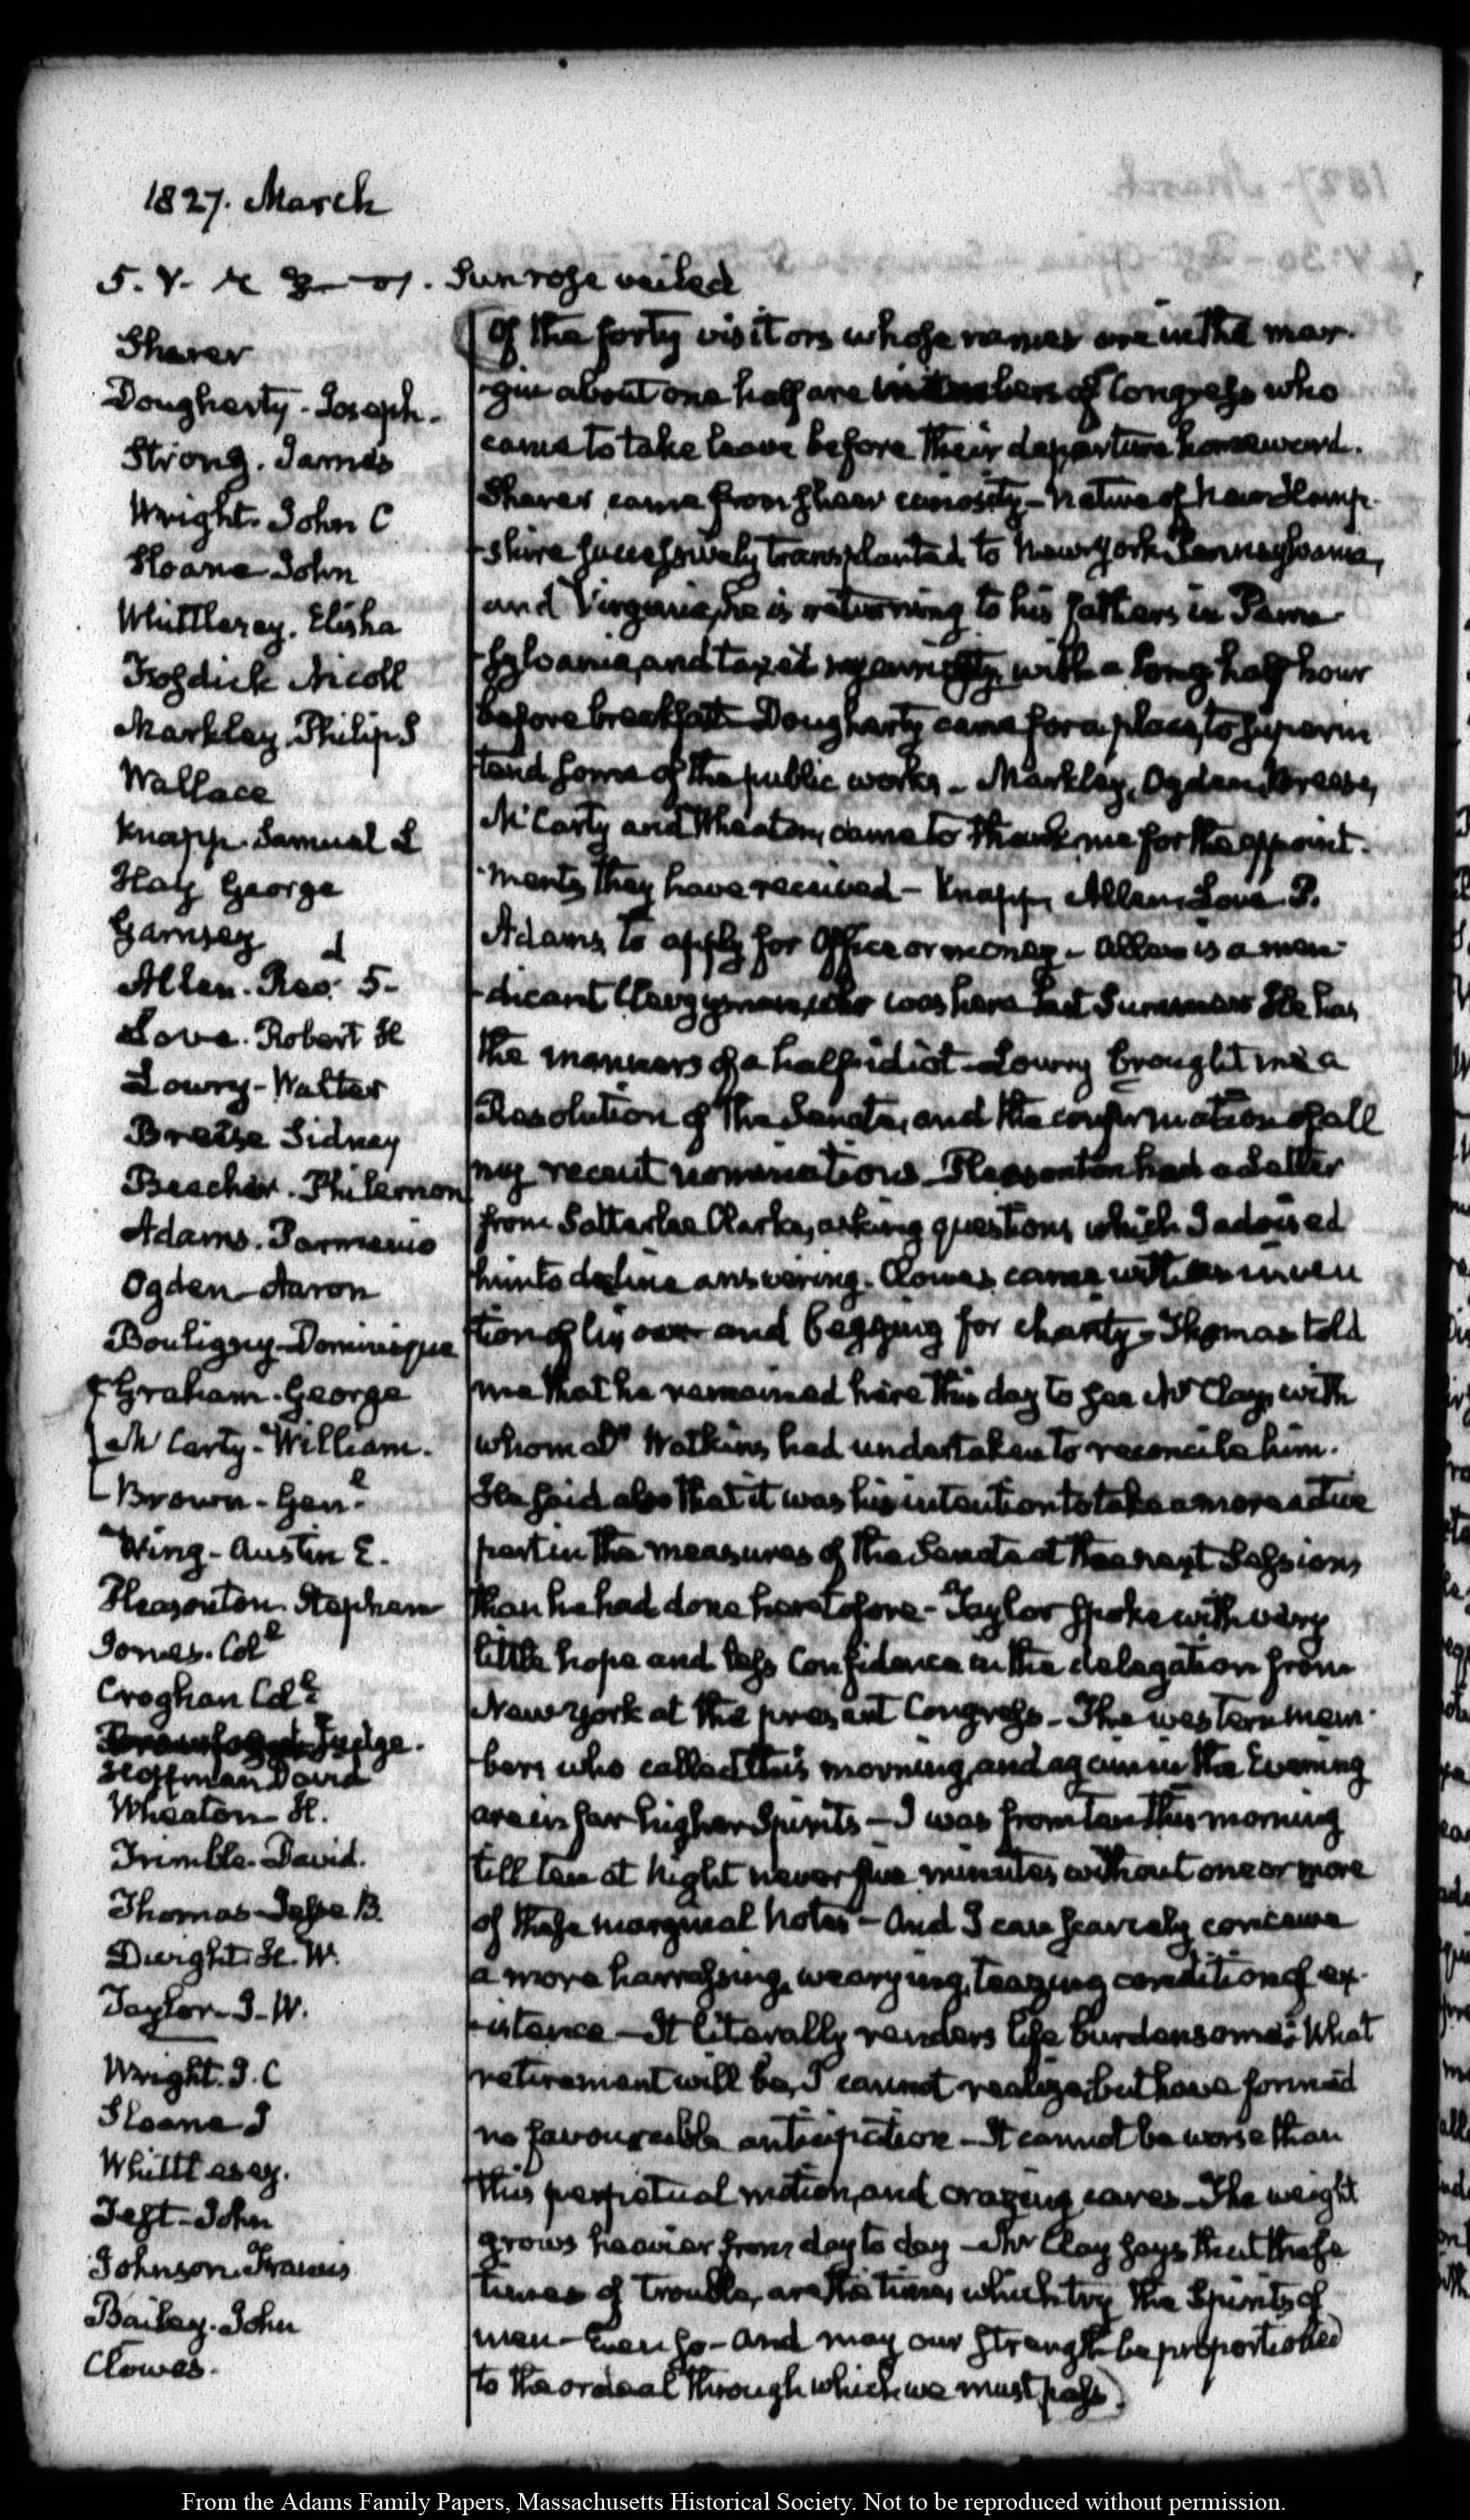 1827. March
5. V. Sun rose veiled
Sherer
Dougherty - Joseph.
Strong. James
Wright. John C
Sloane John
Whittlesey. Elisha
Fosdick Nicoll
Markley. Philip S
Wallace
Knapp. Samuel L
Hay George
Garnsey
Allen. Revd. 5-
Love. Robert H
Lowry - Walter
Breese Sidney
Beecher. Philemon
Adams. Parmenio
Ogden - Aaron
Bouligny - Dominique
Graham. George
Mc Carty - William.
Brown - Genl.
Wing - Austin E.
Pleasonton. Stephen
Jones. Coll
Croghan Coll.
Judge.
Hoffman David
Wheaton - H.
Trimble. David.
Thomas - Jesse B.
Dwight. H. W.
Taylor - J. W.
Wright. J. C
Sloane J
Whittlesey.
Test - John
Johnson. Francis
Bailey. John
Clowes.
Of the forty visitors whose names are in the mar-
gin about one half are members of Congress who
came to take leave before their departure homeward.
Sherer came from sheer curiosity - Native of New Hamp-
shire successively transplanted to New York, Pennsylvania,
and Virginia, he is returning to his fathers in Penn-
sylvania, and taxed my with a long half hour
before breakfast - Dougherty came for a place, to superin
tend some of the public works - Markley, Ogden, Breese,
McCarty and Wheaton, came to thank me for the appoint-
ments they have received - Knapp, Allen, Love, P.
Adams, to apply for Office or money - Allen is a men-
dicant Clergyman, who was here last Summer He has
the manners of a half idiot - Lowry brought me a
Resolution of the Senate, and the confirmation of all
my recent nominations - Pleasonton had a Letter
from Satterlee Clarke, asking questions, which I advised
him to decline answering. Clowes came with an inven
tion of his own and begging for charity - Thomas told
me that he remained here this day to see Mr Clay, with
whom Dr Watkins had undertaken to reconcile him.
He said also that it was his intention to take a more active
part in the measures of the Senate at the next Session,
than he had done heretofore - Taylor spoke with very
little hope and less Confidence in the delegation from
New York at the present Congress - The western mem-
bers who called this morning, and again in the Evening
are in far higher Spirits - I was from ten this morning
till ten at Night never five minutes without one or more
of these marginal Notes - And I can scarcely conceive
a more harrassing, wearying, teazing condition of ex-
istence - It literally renders life burdensome. What
retirement will be, I cannot realize, but have formed
no favourable anticipation - It cannot be worse than
this perpetual motion, and crazing cares - The weight
grows heavier from day to day - Mr Clay says that these
times of trouble, are the times which try the Spirits of
men - Even so - And may our strength be proportioned
to the ordeal through which we must pass)
From the Adams Family Papers, Massachusetts Historical Society. Not to be reproduced without permission.